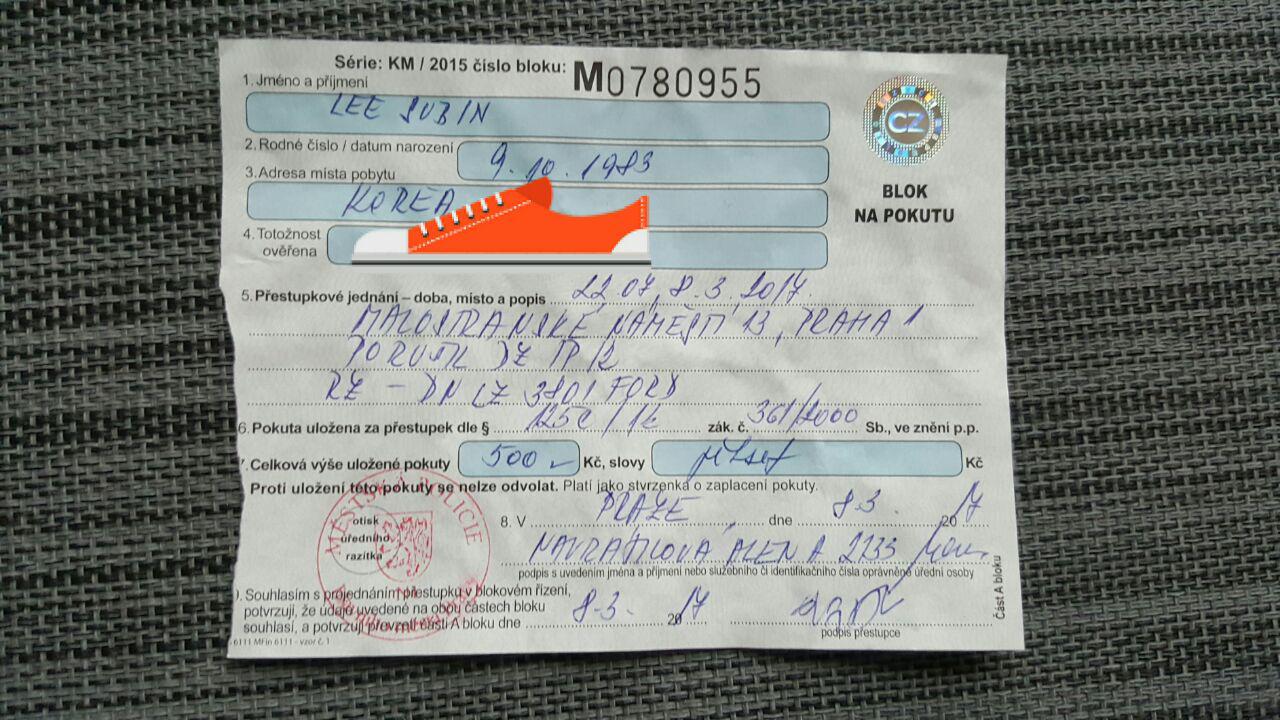 Série: KM / 2015 číslo bloku: M0780955
1. Jméno a příjmení
LEE SUBIN
2. Rodné číslo / datum narození 9.10.1983
3. Adresa místa pobytu
KOREA
CZ
BLOK
NA POKUTU
4. Totožnost
ověřena
5. Přestupkové jednání – doba, místo a popis 22,07, 8.3.2017.
MALOSTRANSKÉ NÁMĚSTÍ 13, PRAHA 1
PORUŠIL DZ
RZ – 3801 FORD
6. Pokuta uložena za přestupek dle § 125c / 1k zák. č. 361/2000 Sb., ve znění p.p.
7. Celková výše uložené pokuty 500 Kč, slovy pětset Kč
Proti uložení této pokuty se nelze odvolat. Platí jako stvrzenka o zaplacení pokuty.
MĚSTSKÁ POLICIE
otisk
úředního
razítka
8. V PRAZE dne 8.3. 2017
NAVRÁTILOVÁ ALENA 2235
podpis s uvedením jména a příjmení nebo služebního či identifikačního čísla oprávněné úřední osoby
). Souhlasím s projednáním přestupku v blokovém řízení,
potvrzuji, že údaje uvedené na obou částech bloku
souhlasí, a potvrzuji převzetí části A bloku dne 8.3. 2017
podpis přestupce
6111 MFin 6111 - vzor č. 1
Část A bloku